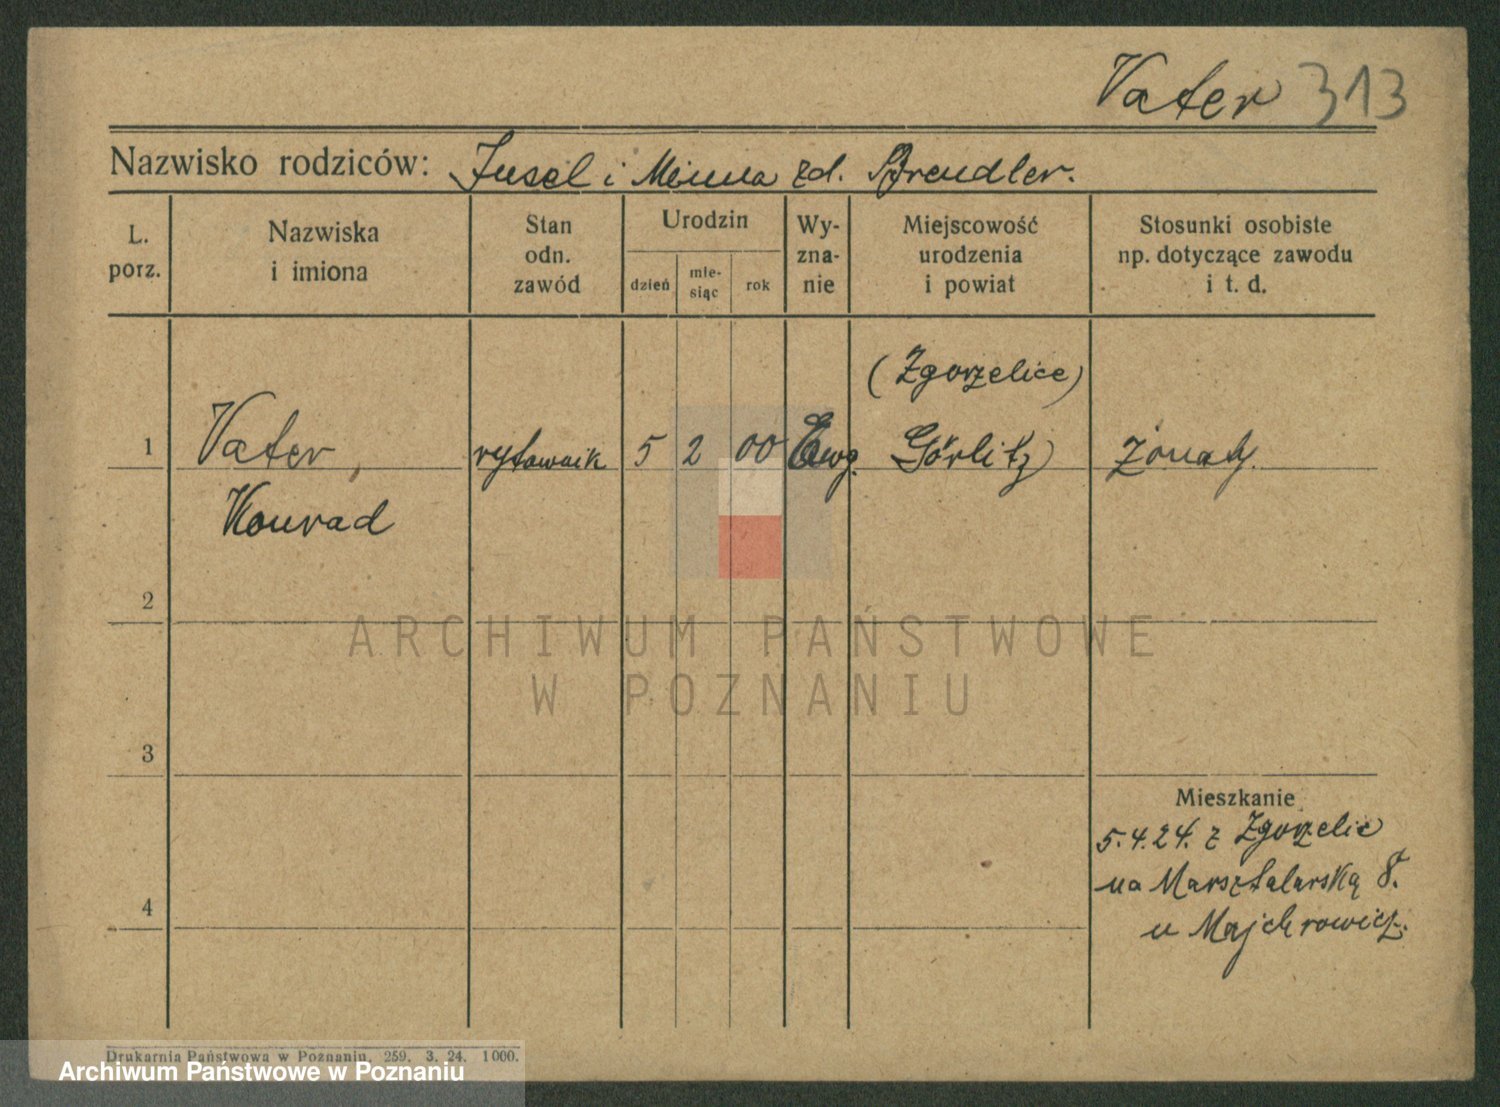 Vater 313
Nazwisko rodziców: Jusel i Minna zd. Brendler.
L. porz.
Nazwiska i imiona
Stan odn. zawód
Urodzin
dzień
mie-
siąc
rok
Wy-
zna-
nie
Miejscowość urodzenia i powiat
Stosunki osobiste np. dotyczące zawodu i t. d.
(Zgorzelice)
1 Vater, rytownik 5 2 00 Ewg. Görlitz żonaty.
Konrad
2
ARCHIWUM PAŃSTWOWE
W POZNANIU
3
Mieszkanie
5.4.24. z Zgorzelic
na Marsztalarską 8.
u Majchrowicz.
4
Drukarnia Państwowa w Poznaniu. 259. 3. 24. 1000.
Archiwum Państwowe w Poznaniu